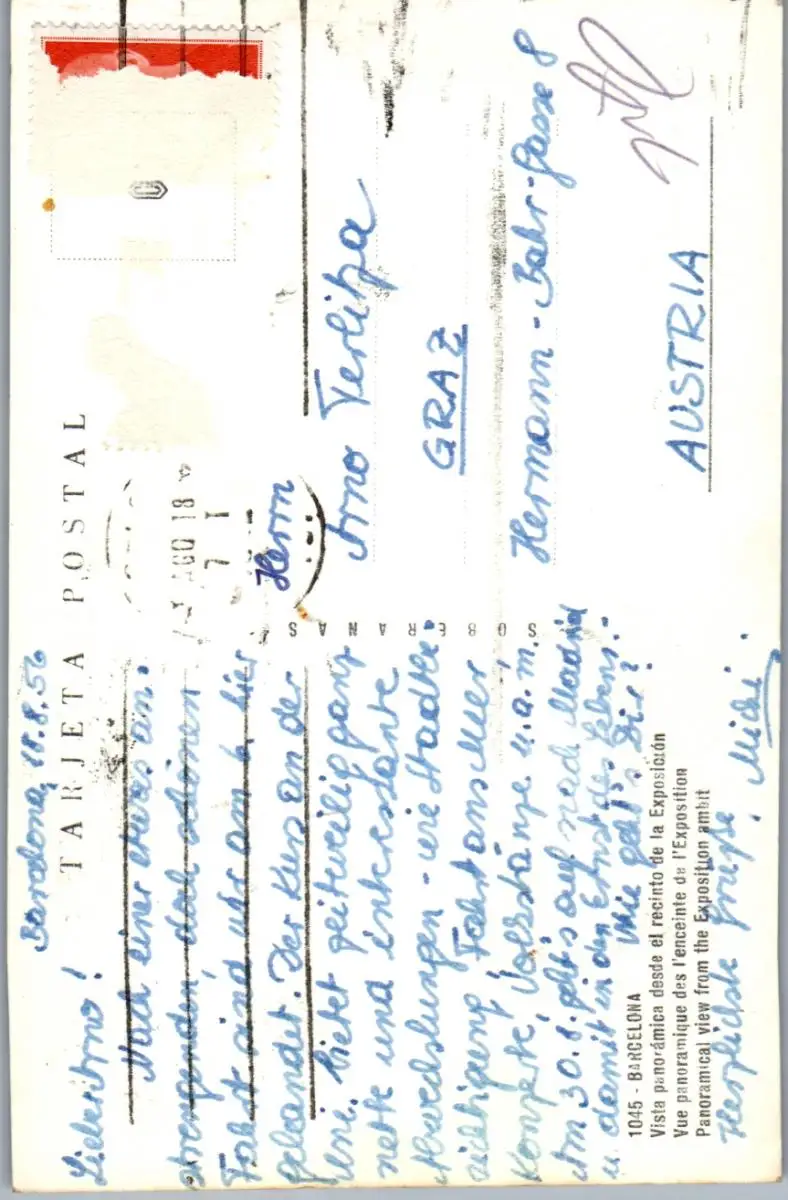 TARJETA POSTAL
Barcelona, 18.8.56
Lieber Arno!
Nach einer etwas an-
strengenden, doch schönen
Fahrt sind wir am 6. hier
gelandet. Der Kurs an der
Uni bietet zeitweilig ganz
nette und interessante
Abwechslungen - wie Stadtbe-
sichtigung, Fahrt ans Meer
Konzerte, Volkstänze u.a.m.
Am 30.8. geht's auf nach Madrid
u. damit in den Ernst des Lebens.-
Wie geht's Dir?
Herzlichste Grüße
Michi.
1045 - BARCELONA
Vista panorámica desde el recinto de la Exposición
Vue panoramique des l'enceinte de l'Exposition
Panoramical view from the Exposition ambit
SOBERANAS
AGO 18
Herrn
Arno Terlitza
GRAZ
Hermann-Bahr-Gasse 8
AUSTRIA